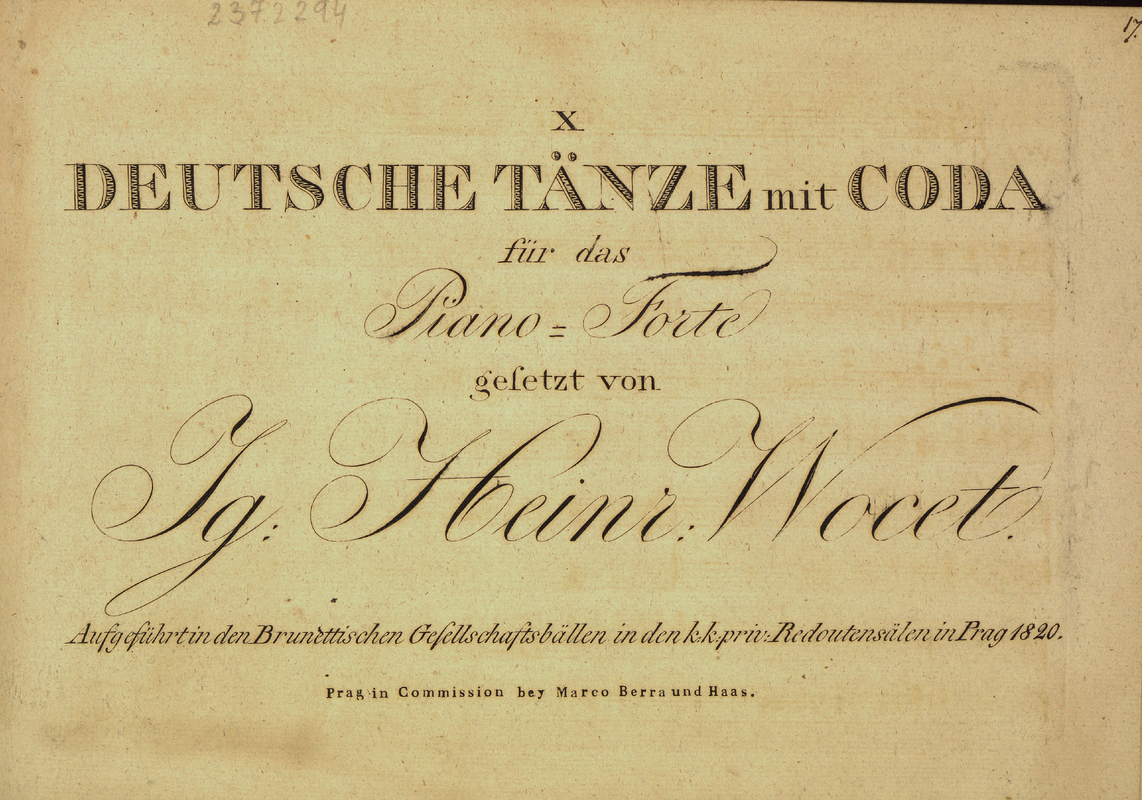 2372294
17.
X
DEUTSCHE TÄNZE mit CODA
für das
Piano = Forte
geſetzt von
Ig: Heinr: Wocet.
Aufgeführt in den Brunettischen Geſellschaftsbällen in den k.k. priv: Redoutensälen in Prag 1820.
Prag in Commission bey Marco Berra und Haas.